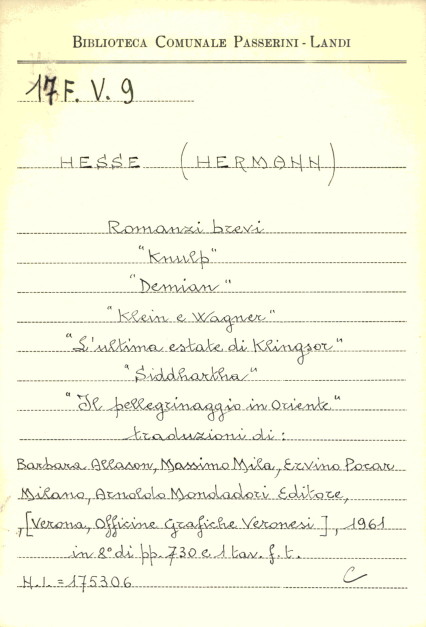 BIBLIOTECA COMUNALE PASSERINI - LANDI
17 F. V. 9
HESSE (HERMANN)
Romanzi brevi
"Knulp"
"Demian"
"Klein e Wagner"
"L'ultima estate di Klingsor"
"Siddhartha"
"Il pellegrinaggio in Oriente"
traduzioni di :
Barbara Allason, Massimo Mila, Ervino Pocar
Milano, Arnoldo Mondadori Editore,
,[Verona, Officine Grafiche Veronesi], 1961
in 8° di pp. 730 e 1 tav. f. t.
N.I. = 175306 C